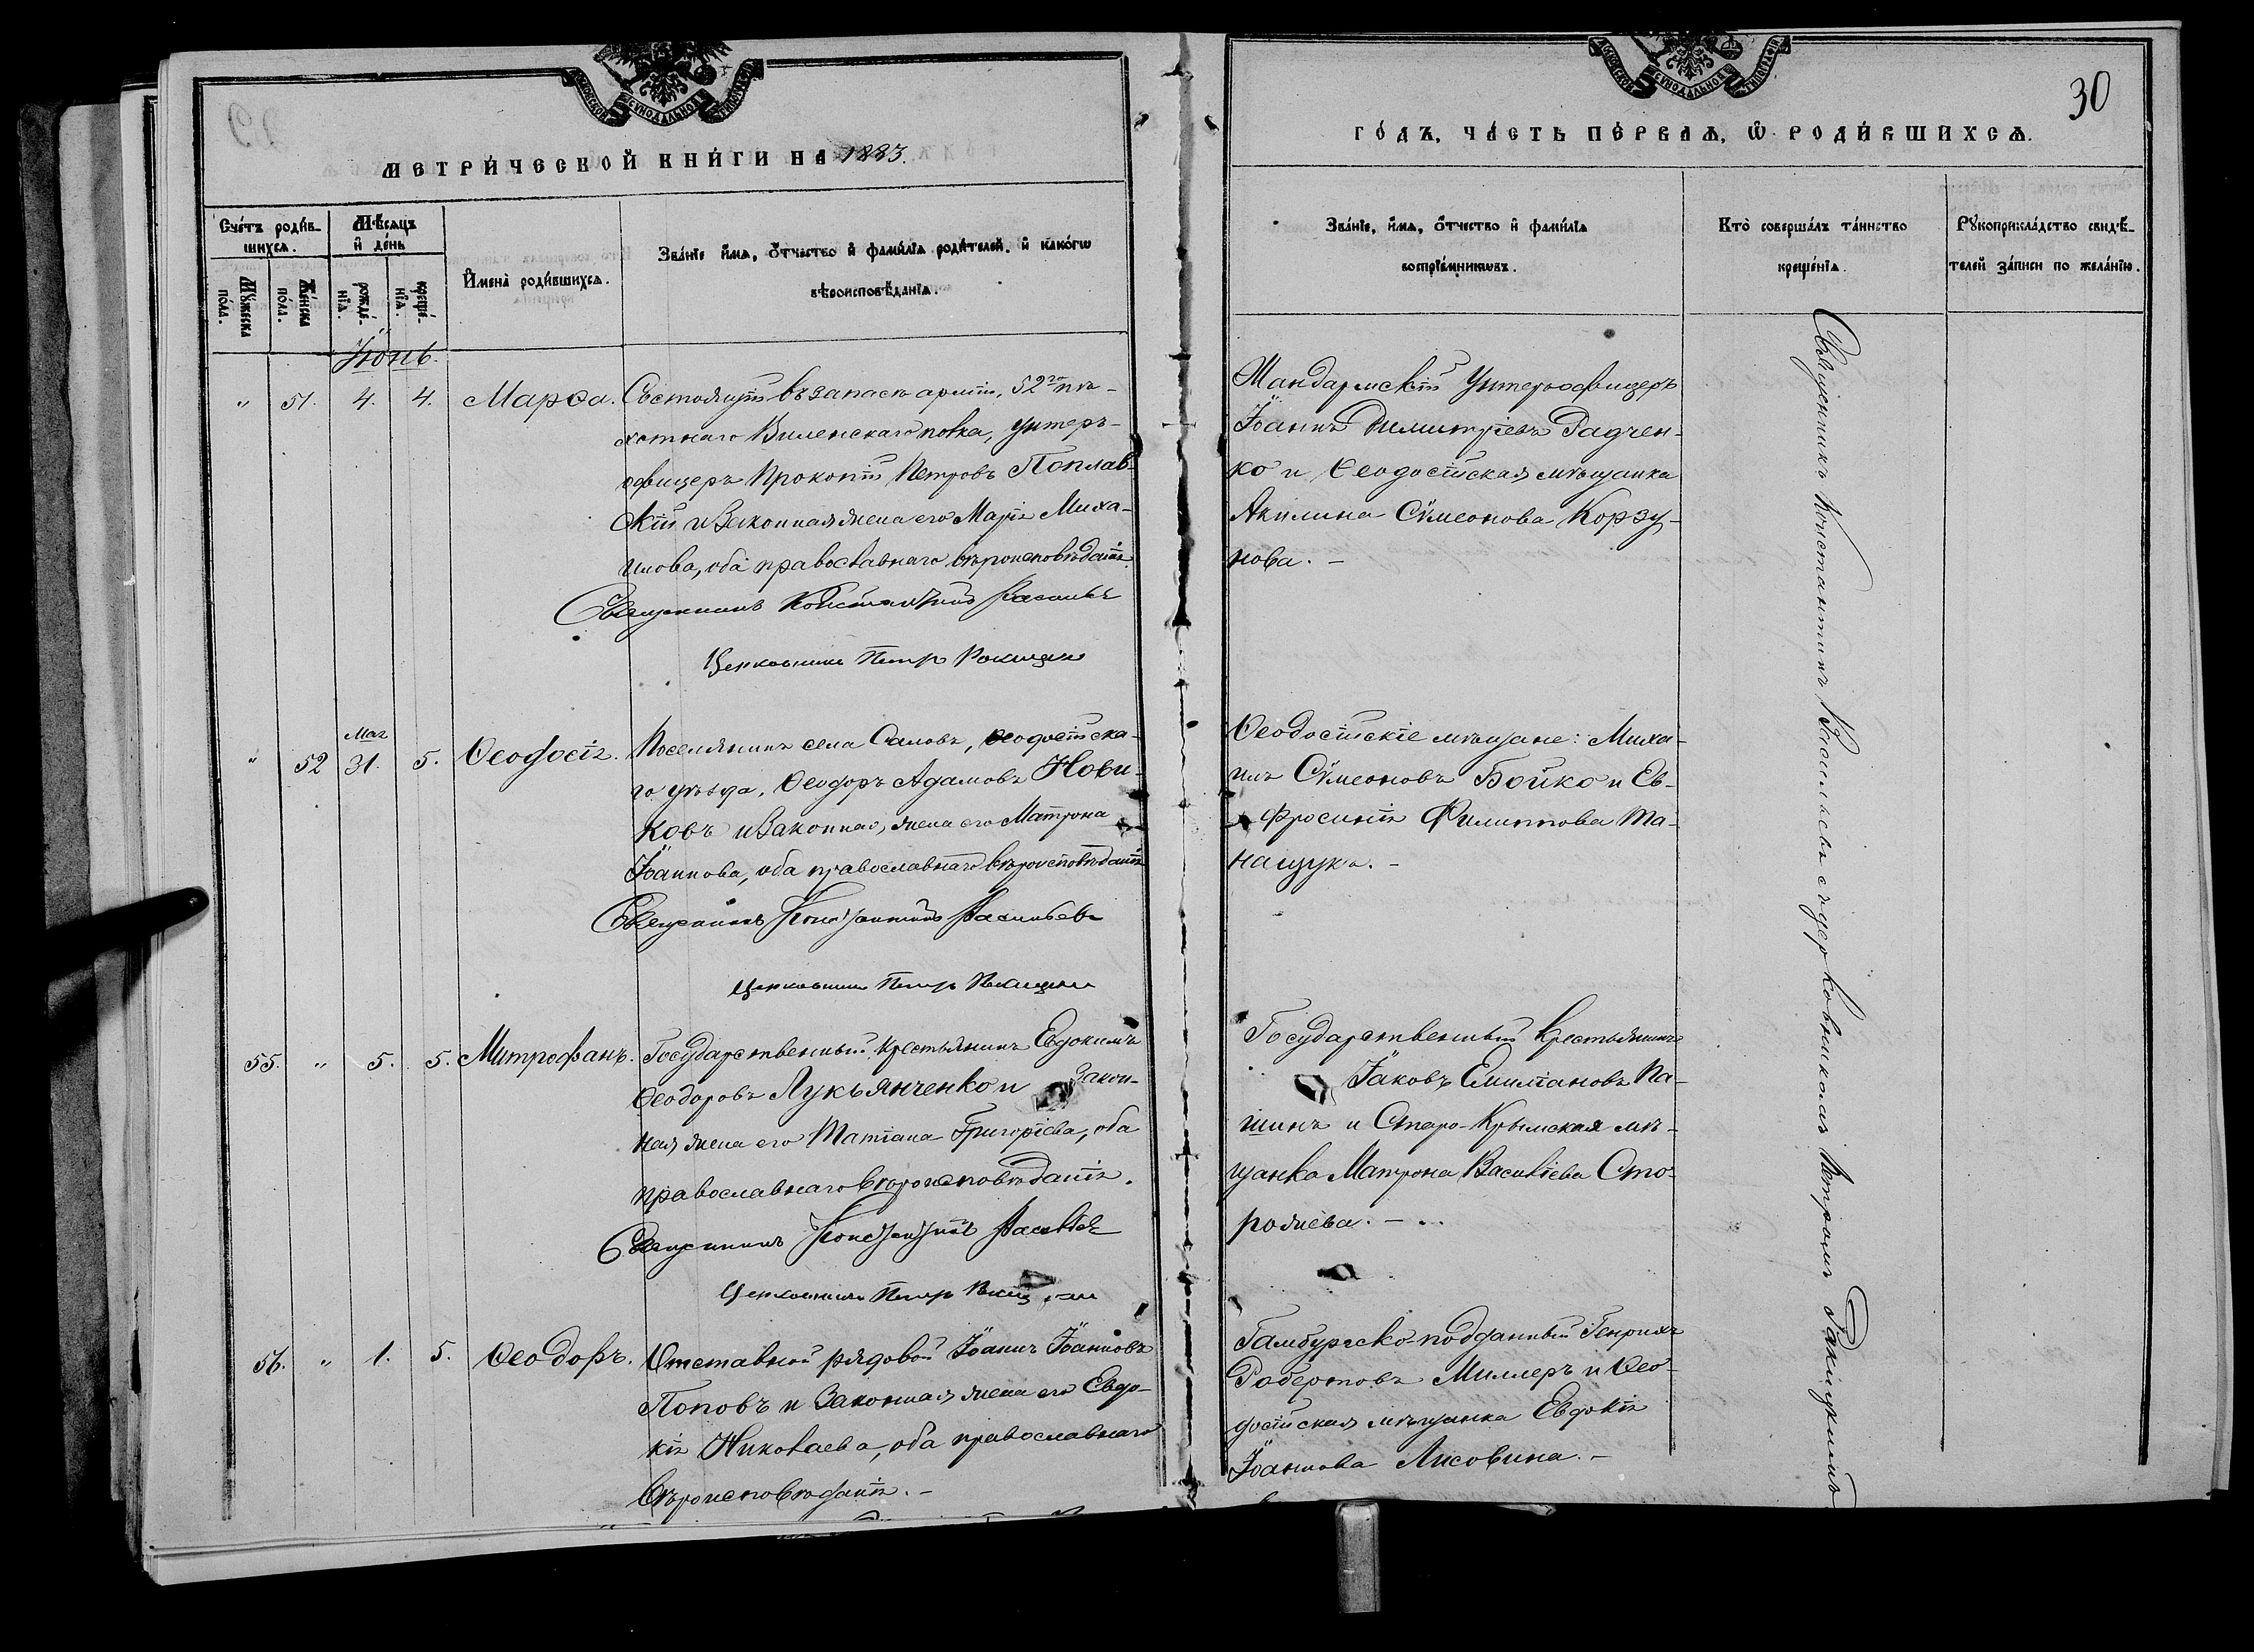 МОСКОВСКОЙ СѴНОДАЛЬНОЙ ТИПОГРАФІИ
МЕТРИ́ЧЕСКОЙ КНИ́ГИ НА 1883.
Сче́тъ роди́в-
шихсѧ.
Мѣ́сѧцъ
и҆ де́нь
Мꙋ́жеска
по́ла.
Же́нска
по́ла.
рожде́-
нїѧ.
креще́-
нїѧ.
И҆мена̀ роди́вшихсѧ.
Зва́нїе и҆́мѧ, ѻ҆́тчество и҆ фами́лїѧ роди́телей, и҆ како́гѡ
вѣроисповѣ́данїѧ.
Іюнь.
" 51. 4. 4. Марѳа.
Состоящій въ запасѣ арміи, 52го пѣ-
хотнаго Виленскаго полка, унтеръ-
офицеръ Прокопій Петровъ Поплав-
скій и Законная жена его Марія Миха-
илова, оба православнаго вѣроисповѣданія.
Священникъ Константинъ Васильевъ
Церковникъ Петръ Ракицкій
" 52 Мая 31. 5. Ѳеодосія.
Поселянинъ села Саловъ, Ѳеодосійска-
го уѣзда, Ѳеодоръ Адамовъ Нови-
ковъ и Законная жена его Матрона
Іоаннова, оба православнаго вѣроисповѣданія
Священникъ Константинъ Васильевъ
Церковникъ Петръ Ракицкій
55. " 5. 5. Митрофанъ.
Государственный крестьянинъ Евдокимъ
Ѳеодоровъ Лукьянченко и Закон-
ная жена его Татіана Григоріева, оба
православнаго вѣроисповѣданія.
Священникъ Константинъ Васильевъ
Церковникъ Петръ
56. " 1. 5. Ѳеодоръ.
Отставной рядовой Іоаннъ Іоанновъ
Поповъ и Законная жена его Евдо-
кія Николаева, оба православнаго
Вѣроисповѣданія. –
МОСКОВСКОЙ СѴНОДАЛЬНОЙ ТИПОГРАФІИ
30
ГО́ДЪ, ЧА́СТЬ ПЕ́РВАѦ, Ѡ҆ РОДИ́ВШИХСѦ.
Зва́нїе, и҆́мѧ, ѻ҆́тчество и҆ фами́лїѧ
воспрїе́мникѡвъ.
Кто̀ соверша́лъ та́инство
креще́нїѧ.
Рꙋкоприкла́дство свидѣ́-
телей за́писи по жела́нїю.
Жандармскій Унтеръ-офицеръ
Іоаннъ Димитріевъ Радчен-
ко и Ѳеодосійская мѣщанка
Акилина Сѵмеонова Корзу-
нова. –
Ѳеодосійскіе мѣщане: Миха-
илъ Сѵмеоновъ Бойко и Ев-
фросинія Филиппова Та-
нащука. –
Государственный крестьянинъ
Іаковъ Емиліановъ Па-
шинъ и Старо-Крымская мѣ-
щанка Матрона Василіева Сто-
рожева. –
Гамбургско-подданный Генрихъ
Робертовъ Миллеръ и Ѳео-
досійская мѣщанка Евдокія
Іоаннова Лисовина. –
Священникъ Константинъ Васильевъ съ церковникомъ Петромъ Ракицкимъ